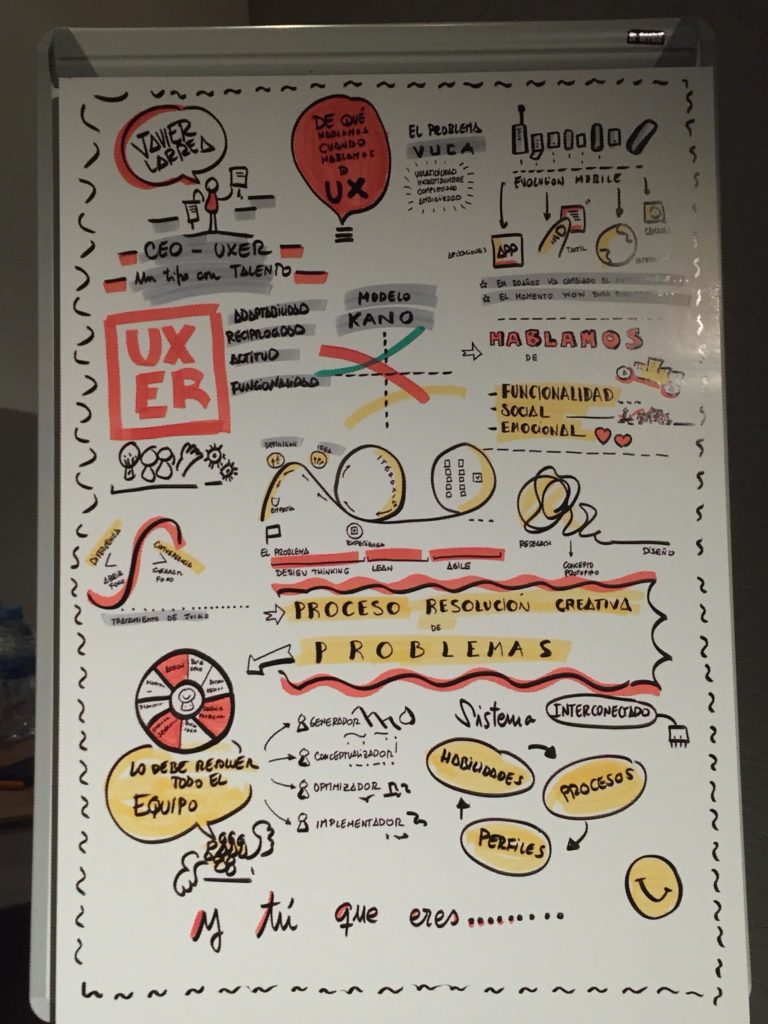 JAVIER
LARREA
CEO - UXER
Un tipo con TALENTO
DE QUÉ
HABLAMOS
CUANDO
HABLAMOS
D
UX
EL PROBLEMA
VUCA
VOLATILIDAD
INCERTIDUMBRE
COMPLEJIDAD
AMBIGUEDAD
EVOLUCION MOBILE
APLICACIONES
APP
TACTIL
CÁMARA
EN 20 AÑOS HA CAMBIADO EL
EL MOMENTO WOW DURA
UX
ER
ADAPTABILIDAD
ACTITUD
FUNCIONALIDAD
MODELO
KANO
HABLAMOS
DE
- FUNCIONALIDAD
- SOCIAL
- EMOCIONAL
DEFINICION
IDEA
EMPATIA
ITERDAIS
EXPERIENCIA
EL PROBLEMA
DESIGN THINKING
LEAN
AGILE
RESEARCH
CONCEPTO
PROTOTIPO
DISEÑO
DIVERGENCIA
CONVERGENCIA
ABRIR
FOCO
CERRAR
FOCO
TRATAMIENTO DE JUICIO
PROCESO RESOLUCIÓN CREATIVA
DE
PROBLEMAS
LO DEBE RESOLVER
TODO EL
EQUIPO
GENERADOR
CONCEPTUALIZADOR
OPTIMIZADOR
IMPLEMENTADOR
Sistema
INTERCONECTADO
HABILIDADES
PROCESOS
PERFILES
Y tú que eres.........